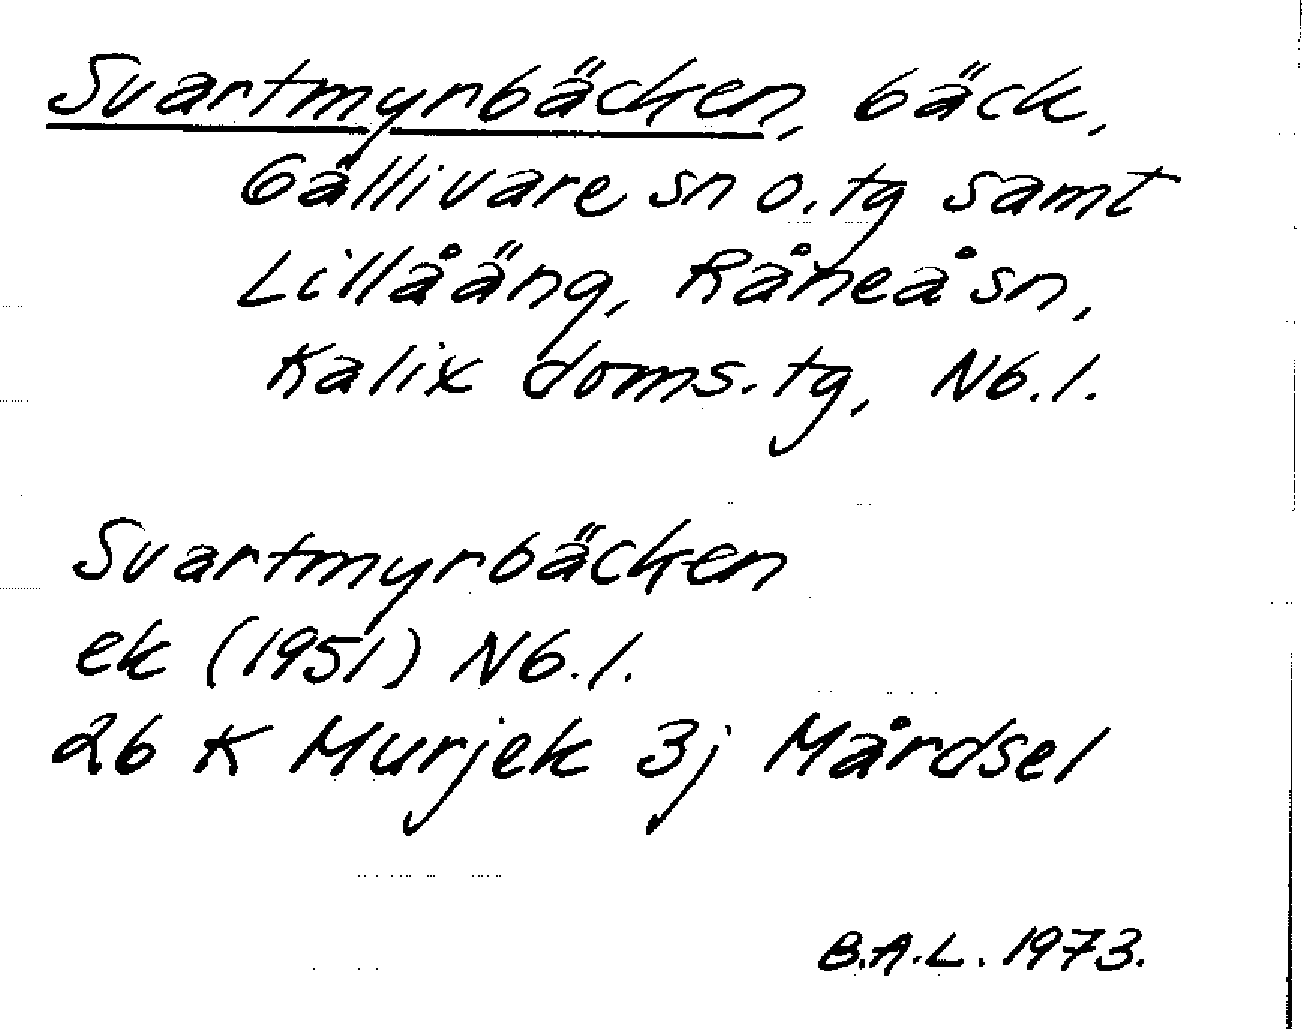 Svartmyrbäcken, bäck,
Gällivare sn o. tg samt
Lillåäng, Råneå sn,
Kalix doms. tg, Nb. l.
Svartmyrbäcken
ek (1951) Nb. l.
26 K Murjek 3j Mårdsel
B.A.L. 1973.